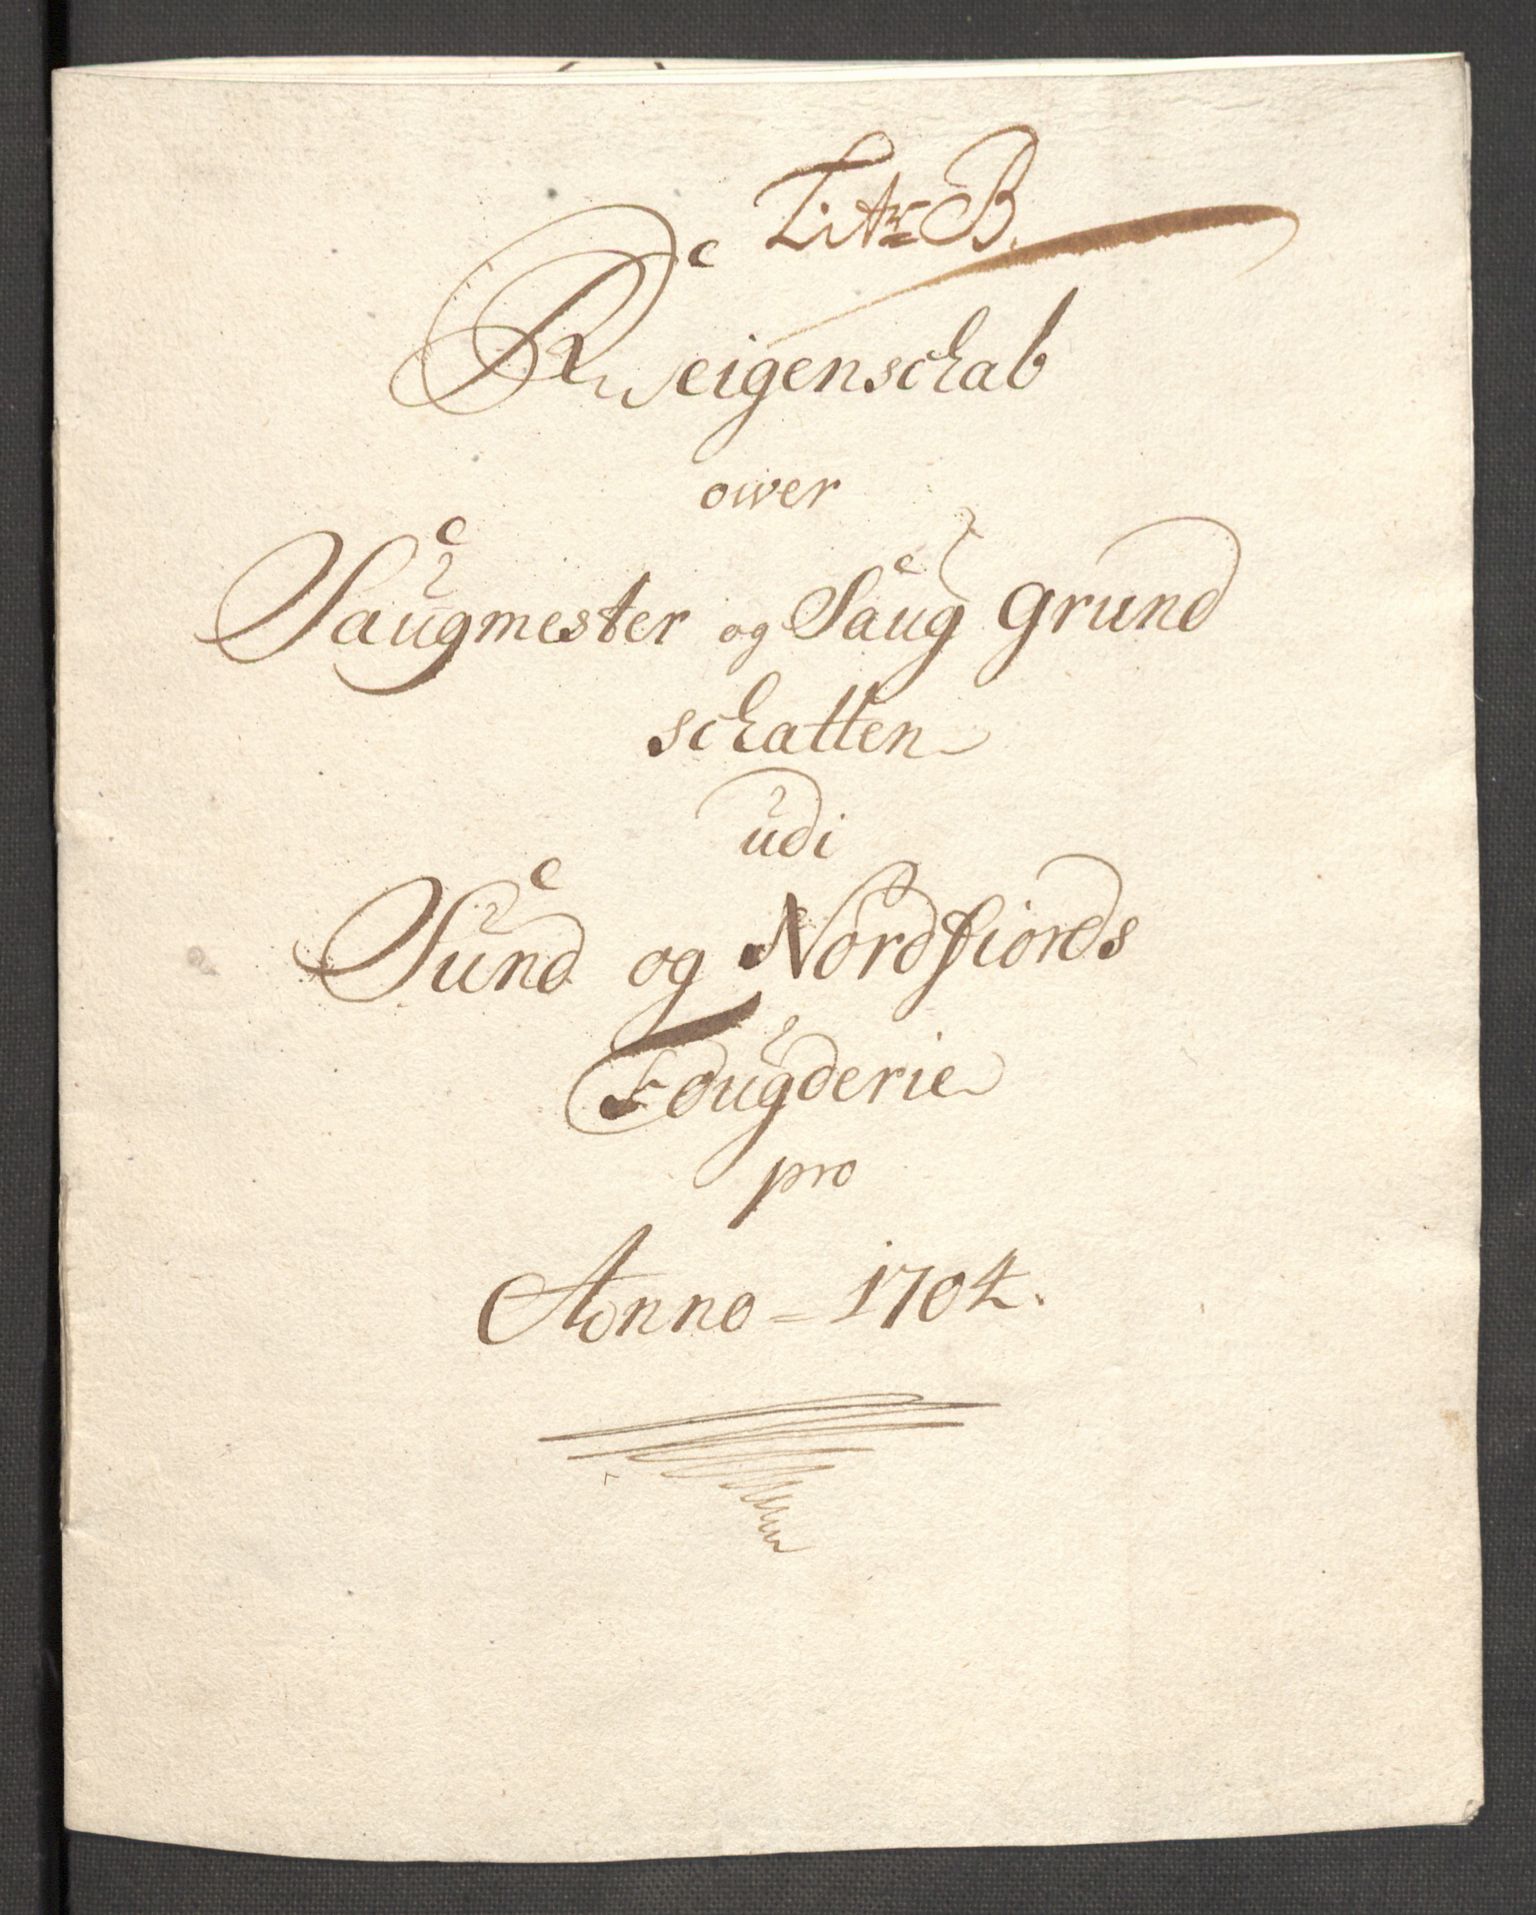 Litr B.
Reigenschab
ower
Saugmester og Saug grund
schatten
udi
Sund og Nordfiords
Fougderie
pro
Anno = 1704.